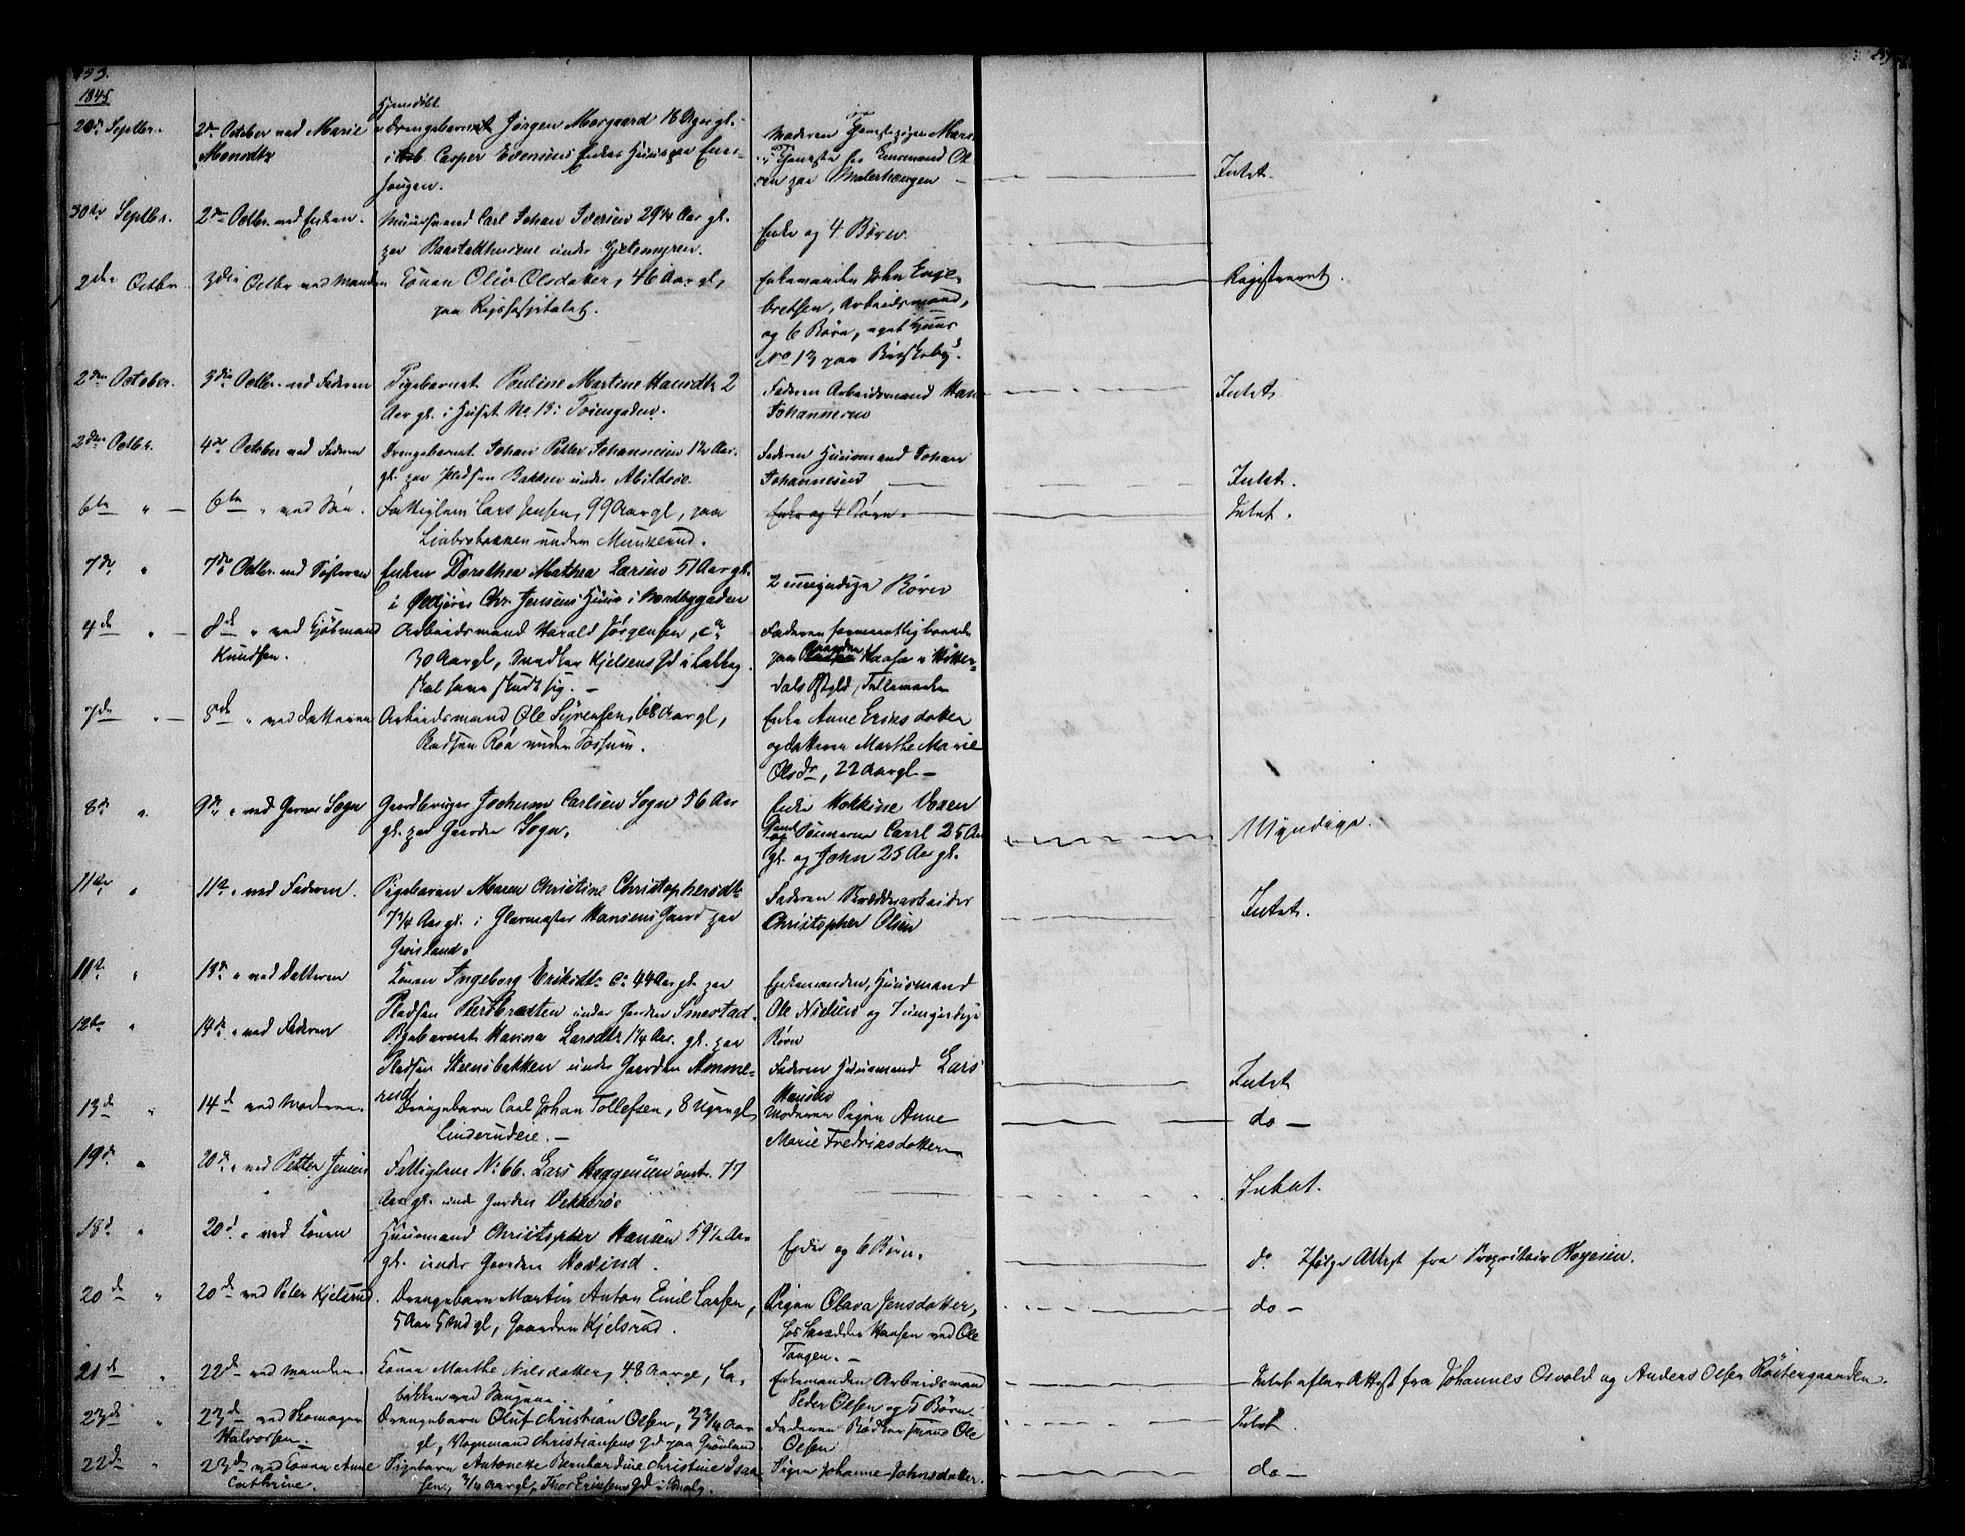 153.
1845
20de Septbr. 2den October ved Marie Monsdtr
Hjemdøbt
Drengebarnet Jørgen Morgaard 18 Uger gl.
Casper Evensens Enkes Huus paa Ener-
haugen.
Moderen Tjenestepigen
i Tjeneste hos
Intet
30te Septbr. 2den Octbr. ved Enken.
Muursvend Carl Johan Iversen 29 1/4 Aar gl.
paa Baastadhusene under Gjetemyren.
Enke og 4 Børn.
2den Octbr. 3die Octbr ved Manden
Konen Oliv Olsdatter, 46 Aar gl,
paa Rigshospitalet.
Enkemanden John Enge-
bretsen, Arbeidsmand,
og 6 Børn, eget Huus
No 13 paa
Registreret.
2den October. 3die Octbr. ved Faderen
Pigebarnet Pauline Martine Hansdtr 2
Aar gl. i Huset No 15 i Tøiengaden.
Faderen Arbeidsmand Hans
Johannesen
Intet
2den Octbr. 4de October ved Faderen
Drengebarnet Johan Petter Johannesen 1 1/2 Aar
gl. paa Pladsen Bakken under Abildsøe.
Faderen Huusmand Johan
Johannesen
Intet.
6te " 6te " ved Søn.
Fattiglem Lars Jensen, 99 Aar gl, paa
Liabrobakken under Munkerud.
Enke og 4 Børn.
Intet.
7de " 7de Octbr. ved Søsteren
Enken Dorothea Mathea Larsen 51 Aar gl.
i Chr. Jensens Huus i Nordbygaden
2 umyndige Børn
4de " 8de " ved Kjøbmand
Knudsen.
Arbeidsmand Harald Jørgensen, ca
30 Aar gl, Kjelsens Gd i Lakkeg.
skal have skudt sig.
Faderen formentlig boende
paa Gaarden Haase i Hitter-
dals Pgjld, Tellemarken
7de " 8de " ved Datteren
Arbeidsmand Ole Syversen, 68 Aar gl,
Pladsen Røa under Fossum.
Enke Anne Eriksdatter
og Datteren Marthe Marie
Olsdr, 22 Aar gl
8de " 9de " ved Sogn
Gaardbruger Jochum Carlsen Sogn 56 Aar
gl. paa Gaarden Sogn.
Enke
og Sønnerne Carl 25 Aar
gl. og John 25 Aar gl.
Myndige.
11te " 11te " ved Faderen.
Pigebarnet Maren Christine Christophersdtr
7 1/4 Aar gl. i Glarmester Hansens Gaard paa
Grønland.
Faderen Skrædderarbeider
Christopher Olsen
Intet.
11te " 13de " ved Datteren
Konen Ingeborg Eriksdtr ca 44 Aar gl. paa
Pladsen Persbraaten under Gaarden Smestad.
Enkemanden, Huusmand
Ole Nielsen og 7 umyndige
Børn
12te " 14de " ved Faderen
Pigebarnet Karina Larsdtr 1 1/4 Aar. gl. paa
Pladsen Steensbakken under Gaarden Amme-
rud
Faderen Huusmand Lars
Hansen
Intet
13de " 14de ved Moderen.
Drengebarn Carl Johan Tollefsen, 8 Uger gl,
Linderudeie.
Moderen Pigen Anne
Marie Fredriksdatter
do
19de " 20de " ved Petter Jensen
Fattiglem No 66. Lars Haggensen omtr. 77
Aar gl. under Gaarden Vækkerøe
Intet.
18de " 20de " ved Konen
Huusmand Christopher Hansen 59 1/2 Aar
gl. under Gaarden Hovind.
Enke og 6 Børn.
do Ifølge Attest fra Proprietair
20de " 20de ved Peter Kjelsrud.
Drengebarn Martin Anton Emil Larsen,
5 Aar 5 Mnd gl, Gaarden Kjelsrud.
Pigen Olava Jensdatter,
hos Skrædder Hansen ved Ole
Tangen.
do
21de " 22de ved Manden.
Konen Marthe Nilsdatter, 48 Aar gl,
bakken ved
Enkemanden Arbeidsmand
Peder Olsen og 5 Børn.
Intet efter Attest fra Johannes Osvold og Anders Olsen
23de " 23de ved Skomager
Halvorsen.
Drengebarn Oluf Christian Olsen, 3 3/4 Aar
gl, Vognmand Christiansens Gd paa Grønland
Faderen Bødkersvend Ole
Olsen
Intet
22de " 23de ved Konen Anne
Cathrine.
Pigebarn Antonette Bernhardine Christine Isak-
sen, 3/4 Aar gl, Thor Eriksens Gd i Smalg.
Pigen Johanne Johnsdatter.
do